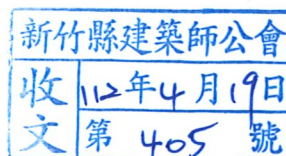 新竹縣建築師公會
收文
112年4月19日
第 405 號